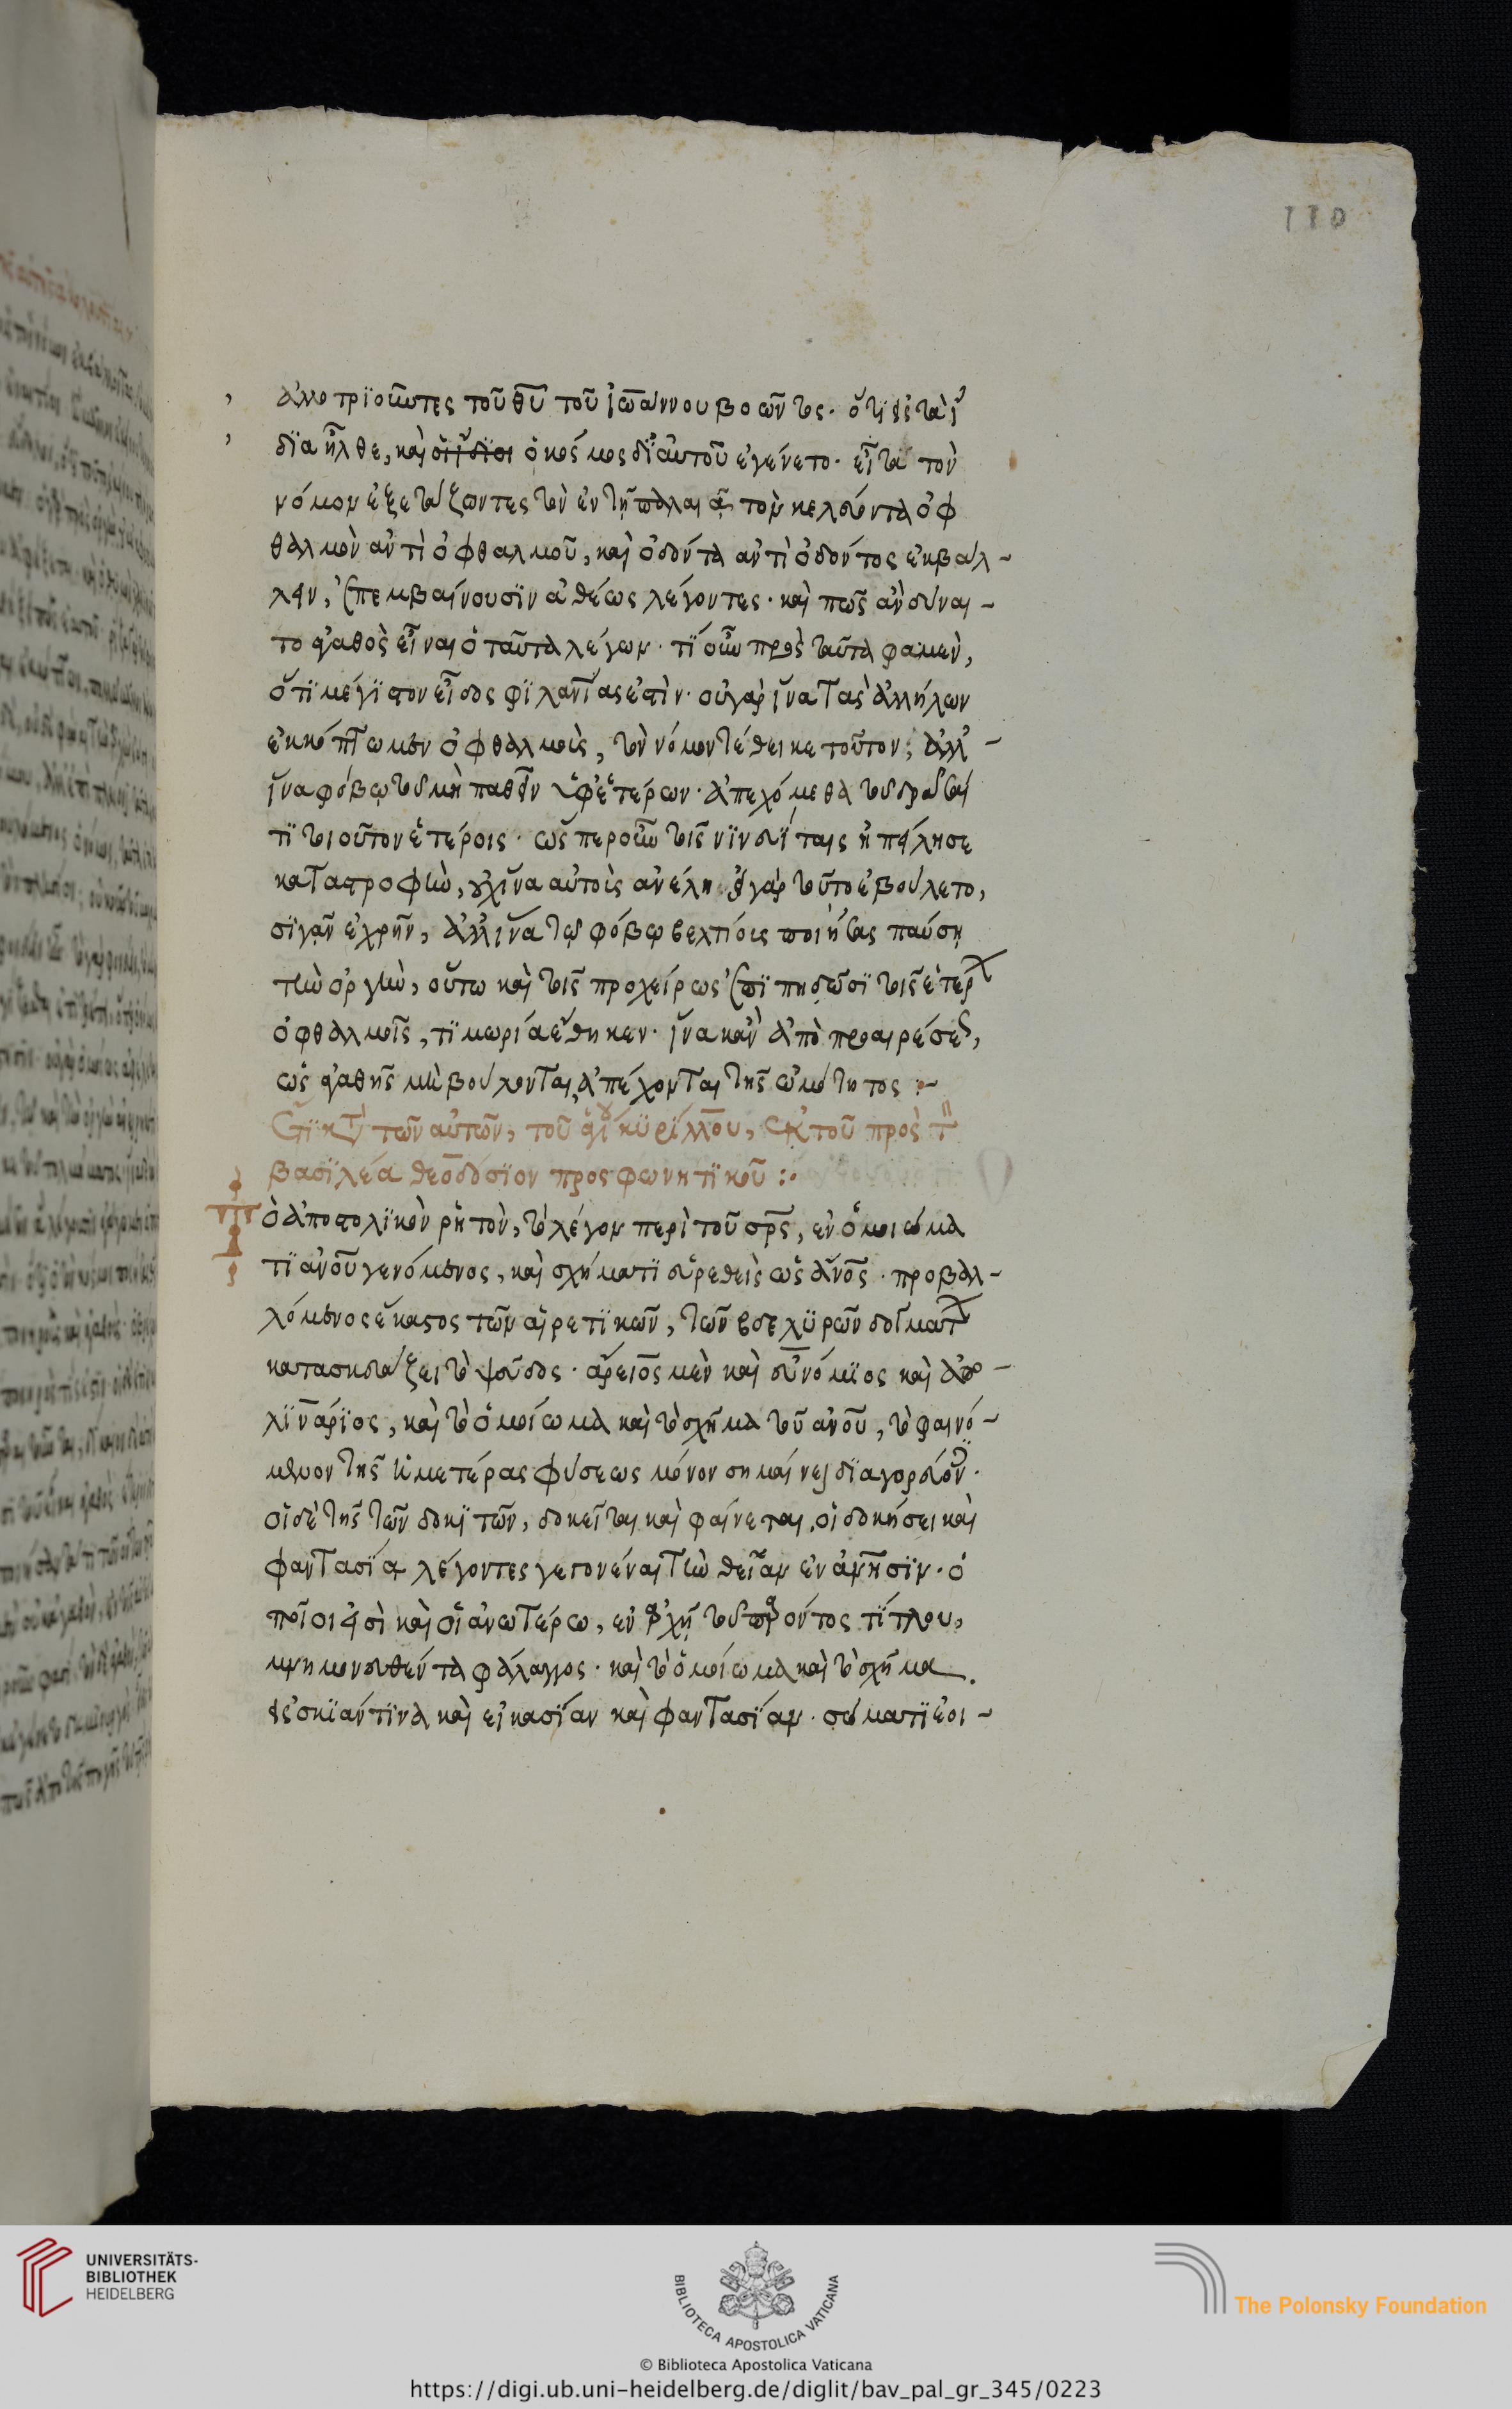 110
ἀλλοτριοῦντες τοῦ θῦ τοῦ ἰωάννου βοῶντος· ὅτι εἰς τὰ ἴ
δια ἦλθε, καὶ οἱ ἴδιοι ὁ κόσμος δι' αὐτοῦ ἐγένετο· εἶτα τὸν
νόμον ἐξετάζοντες τὸν ἐν τῇ παλαιᾷ τὸν κελεύοντα ὀφ
θαλμὸν ἀντὶ ὀφθαλμοῦ, καὶ ὀδόντα ἀντὶ ὀδόντος ἐκβάλ-
λειν, ἐπεμβαίνουσιν ἀθέως λέγοντες· καὶ πῶς ἂν δύναι-
το ἀγαθὸς εἶναι ὁ ταῦτα λέγων· τί οὖν πρὸς ταῦτα φαμὲν,
ὅτι μέγιστον εἶδος φιλανίας ἐστὶν· οὐ γὰρ ἵνα τὰς ἀλλήλων
ἐκκόπτωμεν ὀφθαλμοὺς, τὸν νόμον τέθεικε τοῦτον, ἀλλ' -
ἵνα φόβω τοῦ μὴ παθεῖν ὑφ' ἑτέρων· ἀπεχόμεθα τοῦ δρᾶσαί
τι τοιοῦτον ἑτέροις· ὥσπερ οὖν τοῖς νινευΐταις ἠπείλησε
καταστροφὴν, οὐχ ἵνα αὐτοὺς ἀνέλη εἰ γὰρ τοῦτο ἐβούλετο,
σιγᾶν ἐχρῆν, ἀλλ' ἵνα τῷ φόβῳ βελτίους ποιήσας παύσῃ
τὴν ὀργὴν, οὕτω καὶ τοῖς προχείρως ἐπιπηδῶσι τοῖς ἑτέρων
ὀφθαλμοῖς, τιμωρία ἔθηκεν· ἵνα κἂν ἀπὸ προαιρέσεως,
ὡς ἀγαθῆς μὴ βούλονται ἀπέχονται τῆς ὠμότητος :-
ἔτι κτ τῶν αὐτῶν, τοῦ ἁγίου κυρίλλου, ἐκ τοῦ πρὸς τ
βασιλέα θεοδόσιον προσφωνητικοῦ :·
Τὸ ἀποστολικὸν ῥητὸν, τὸ λέγον περὶ τοῦ σρς, ἐν ὁμοιώμα
τι ἀνοῦ γενόμενος, καὶ σχήματι εὑρεθεὶς ὡς ἄνος· προβαλ-
λόμενος ἕκαστος τῶν αἱρετικῶν, τῶν βδελυρῶν δογμάτων
κατασκευάζει τὸ ψεῦδος· ἄρειος μὲν καὶ εὐνόμιος καὶ ἀπο-
λινάριος, καὶ τὸ ὁμοίωμα καὶ τὸ σχῆμα τοῦ ἀνοῦ, τὸ φαινό-
μενον τῆς ἡμετέρας φύσεως μόνον σημαίνει διαγορεύουν·
οἱ δὲ τῆς τῶν δοκιτῶν, δοκεῖται καὶ φαίνεται, οἱ δοκήσει καὶ
φαντασίᾳ λέγοντες γεγονέναι τὴν θείαν ἐνανησιν· ὁ
ποῖοι εἰσὶ καὶ οἱ ἀνωτέρω, ἐν ἀρχῇ τοῦ παρόντος τίτλου,
μνημονευθέντα φάλαγγος· καὶ τὸ ὁμοίωμα καὶ τὸ σχῆμα
εἰς σκιάν τινα καὶ εἰκασίαν καὶ φαντασίαν· σώματι ἐοι-
UNIVERSITÄTS-
BIBLIOTHEK
HEIDELBERG
BIBLIOTECA APOSTOLICA VATICANA
The Polonsky Foundation
© Biblioteca Apostolica Vaticana
https://digi.ub.uni-heidelberg.de/diglit/bav_pal_gr_345/0223